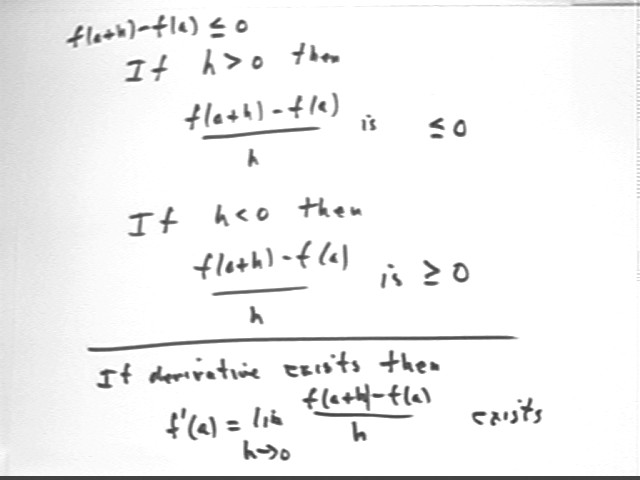 f(a+h)-f(a) ≤ 0
If h>0 then
f(a+h)-f(a)
is ≤0
h
If h<0 then
f(a+h)-f(a)
is ≥ 0
h
If derivative exists then
f'(a) = lim h→0 f(a+h)-f(a) / h exists